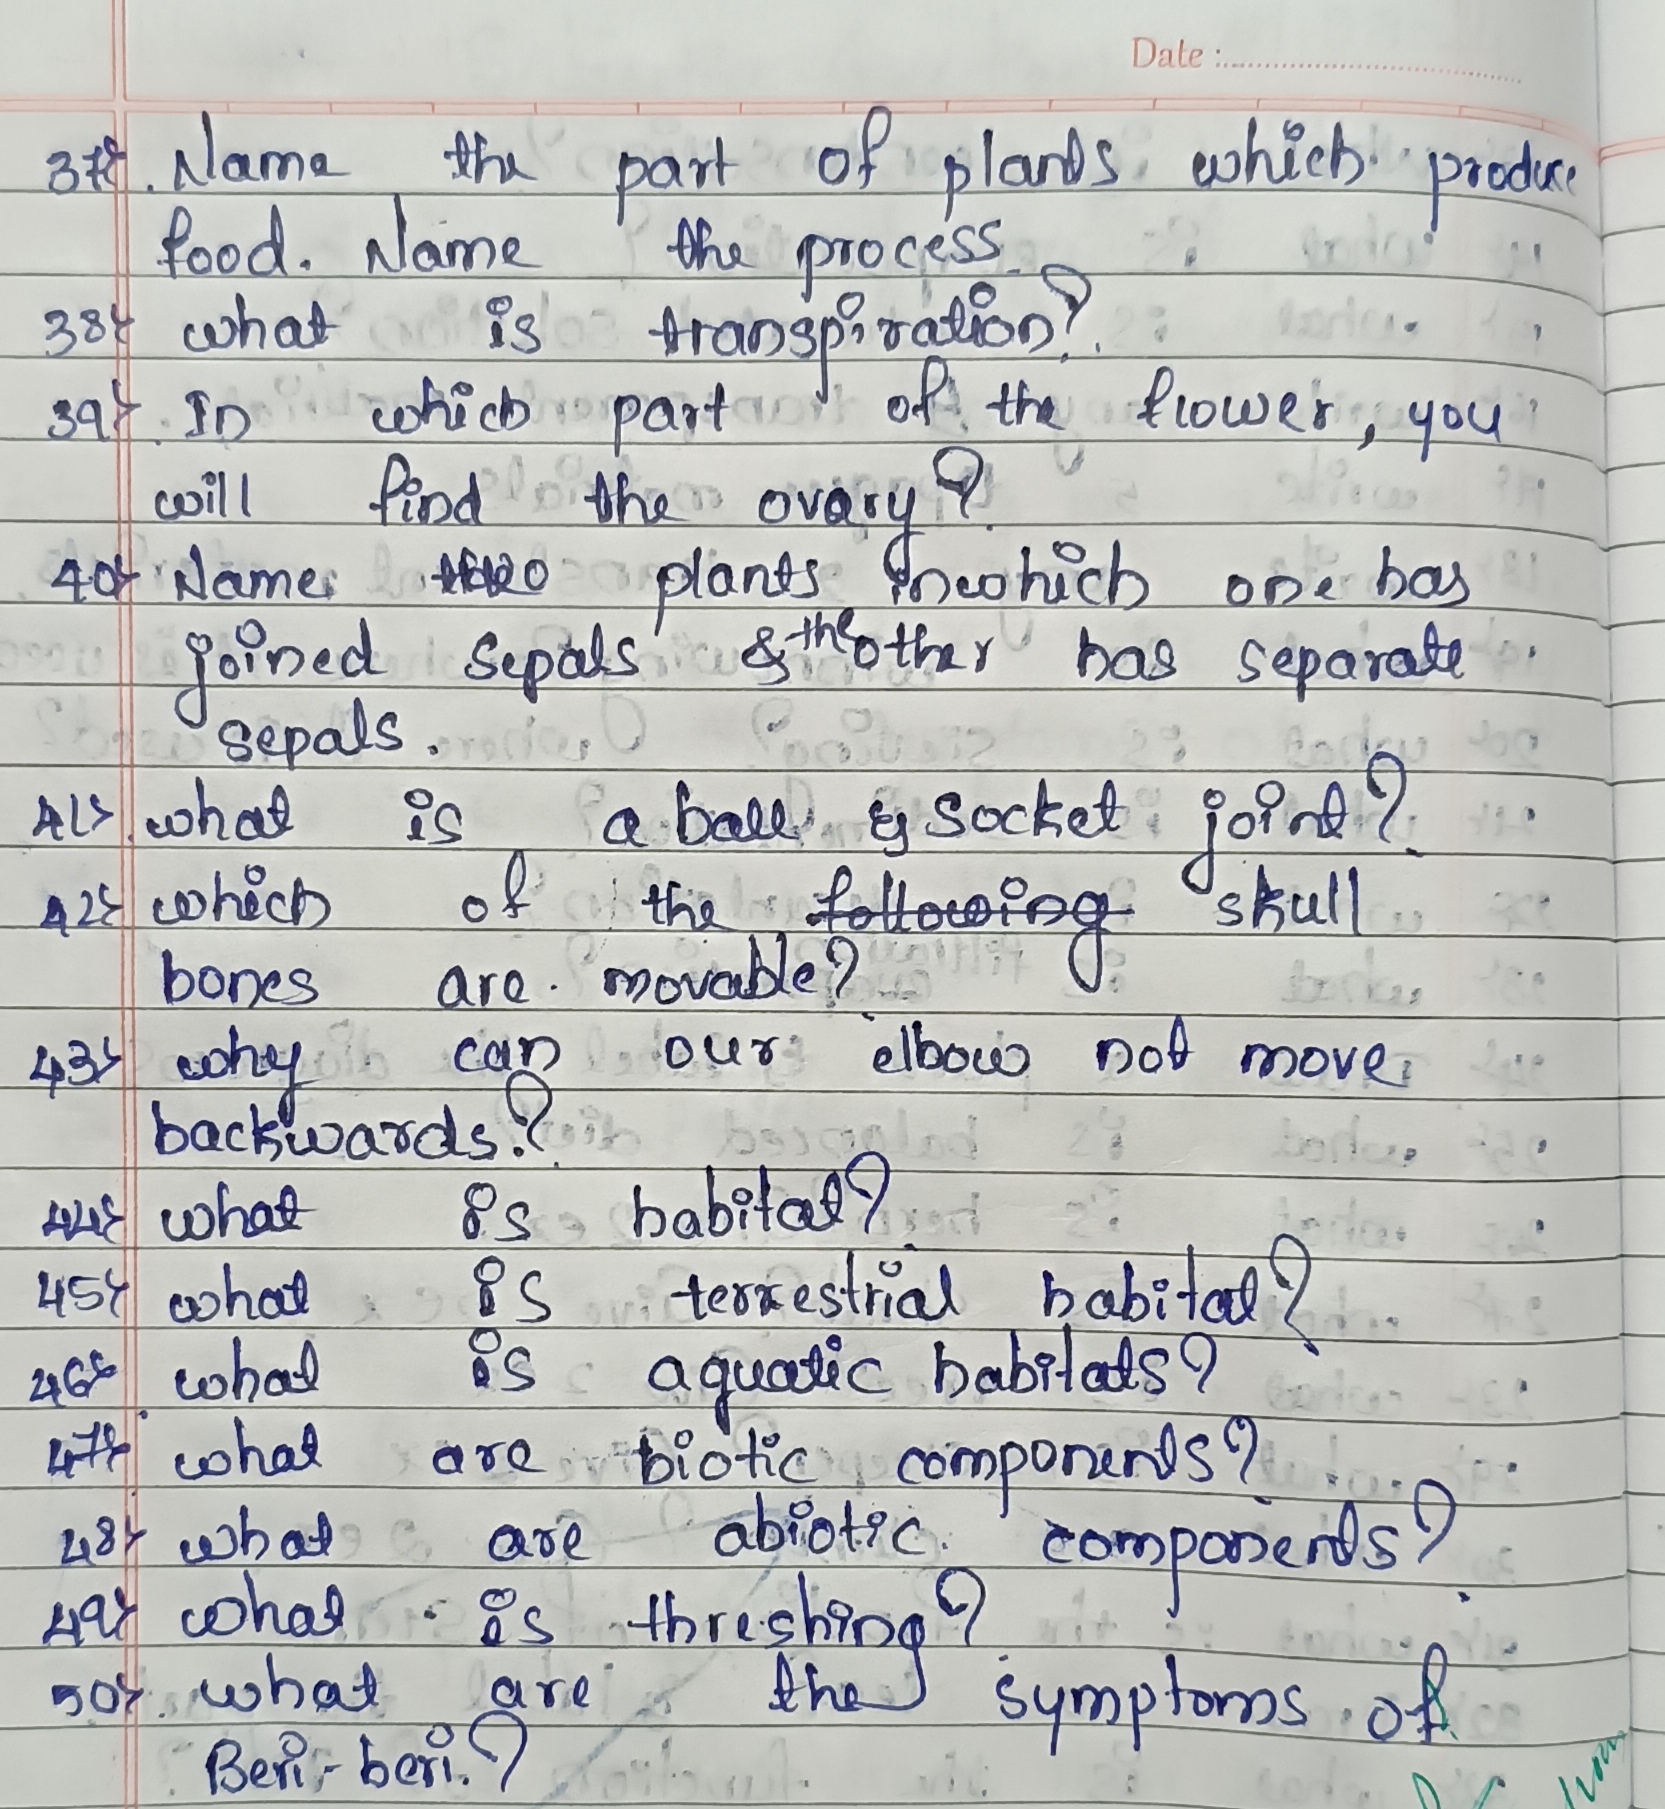 Date :
37) Name the part of plants which produce
food. Name the process.
38) what is transpiration?
39) In which part of the flower, you
will find the ovary?
40) Name two plants in which one has
joined sepals & the other has separate
sepals.
41) what is a ball & socket joint?
42) which of the following skull
bones are movable?
43) why can our elbow not move
backwards?
44) what is habitat?
45) what is terrestrial habitat?
46) what is aquatic habitats?
47) what are biotic components?
48) what are abiotic components?
49) what is threshing?
50) what are the symptoms of
Beri-beri?